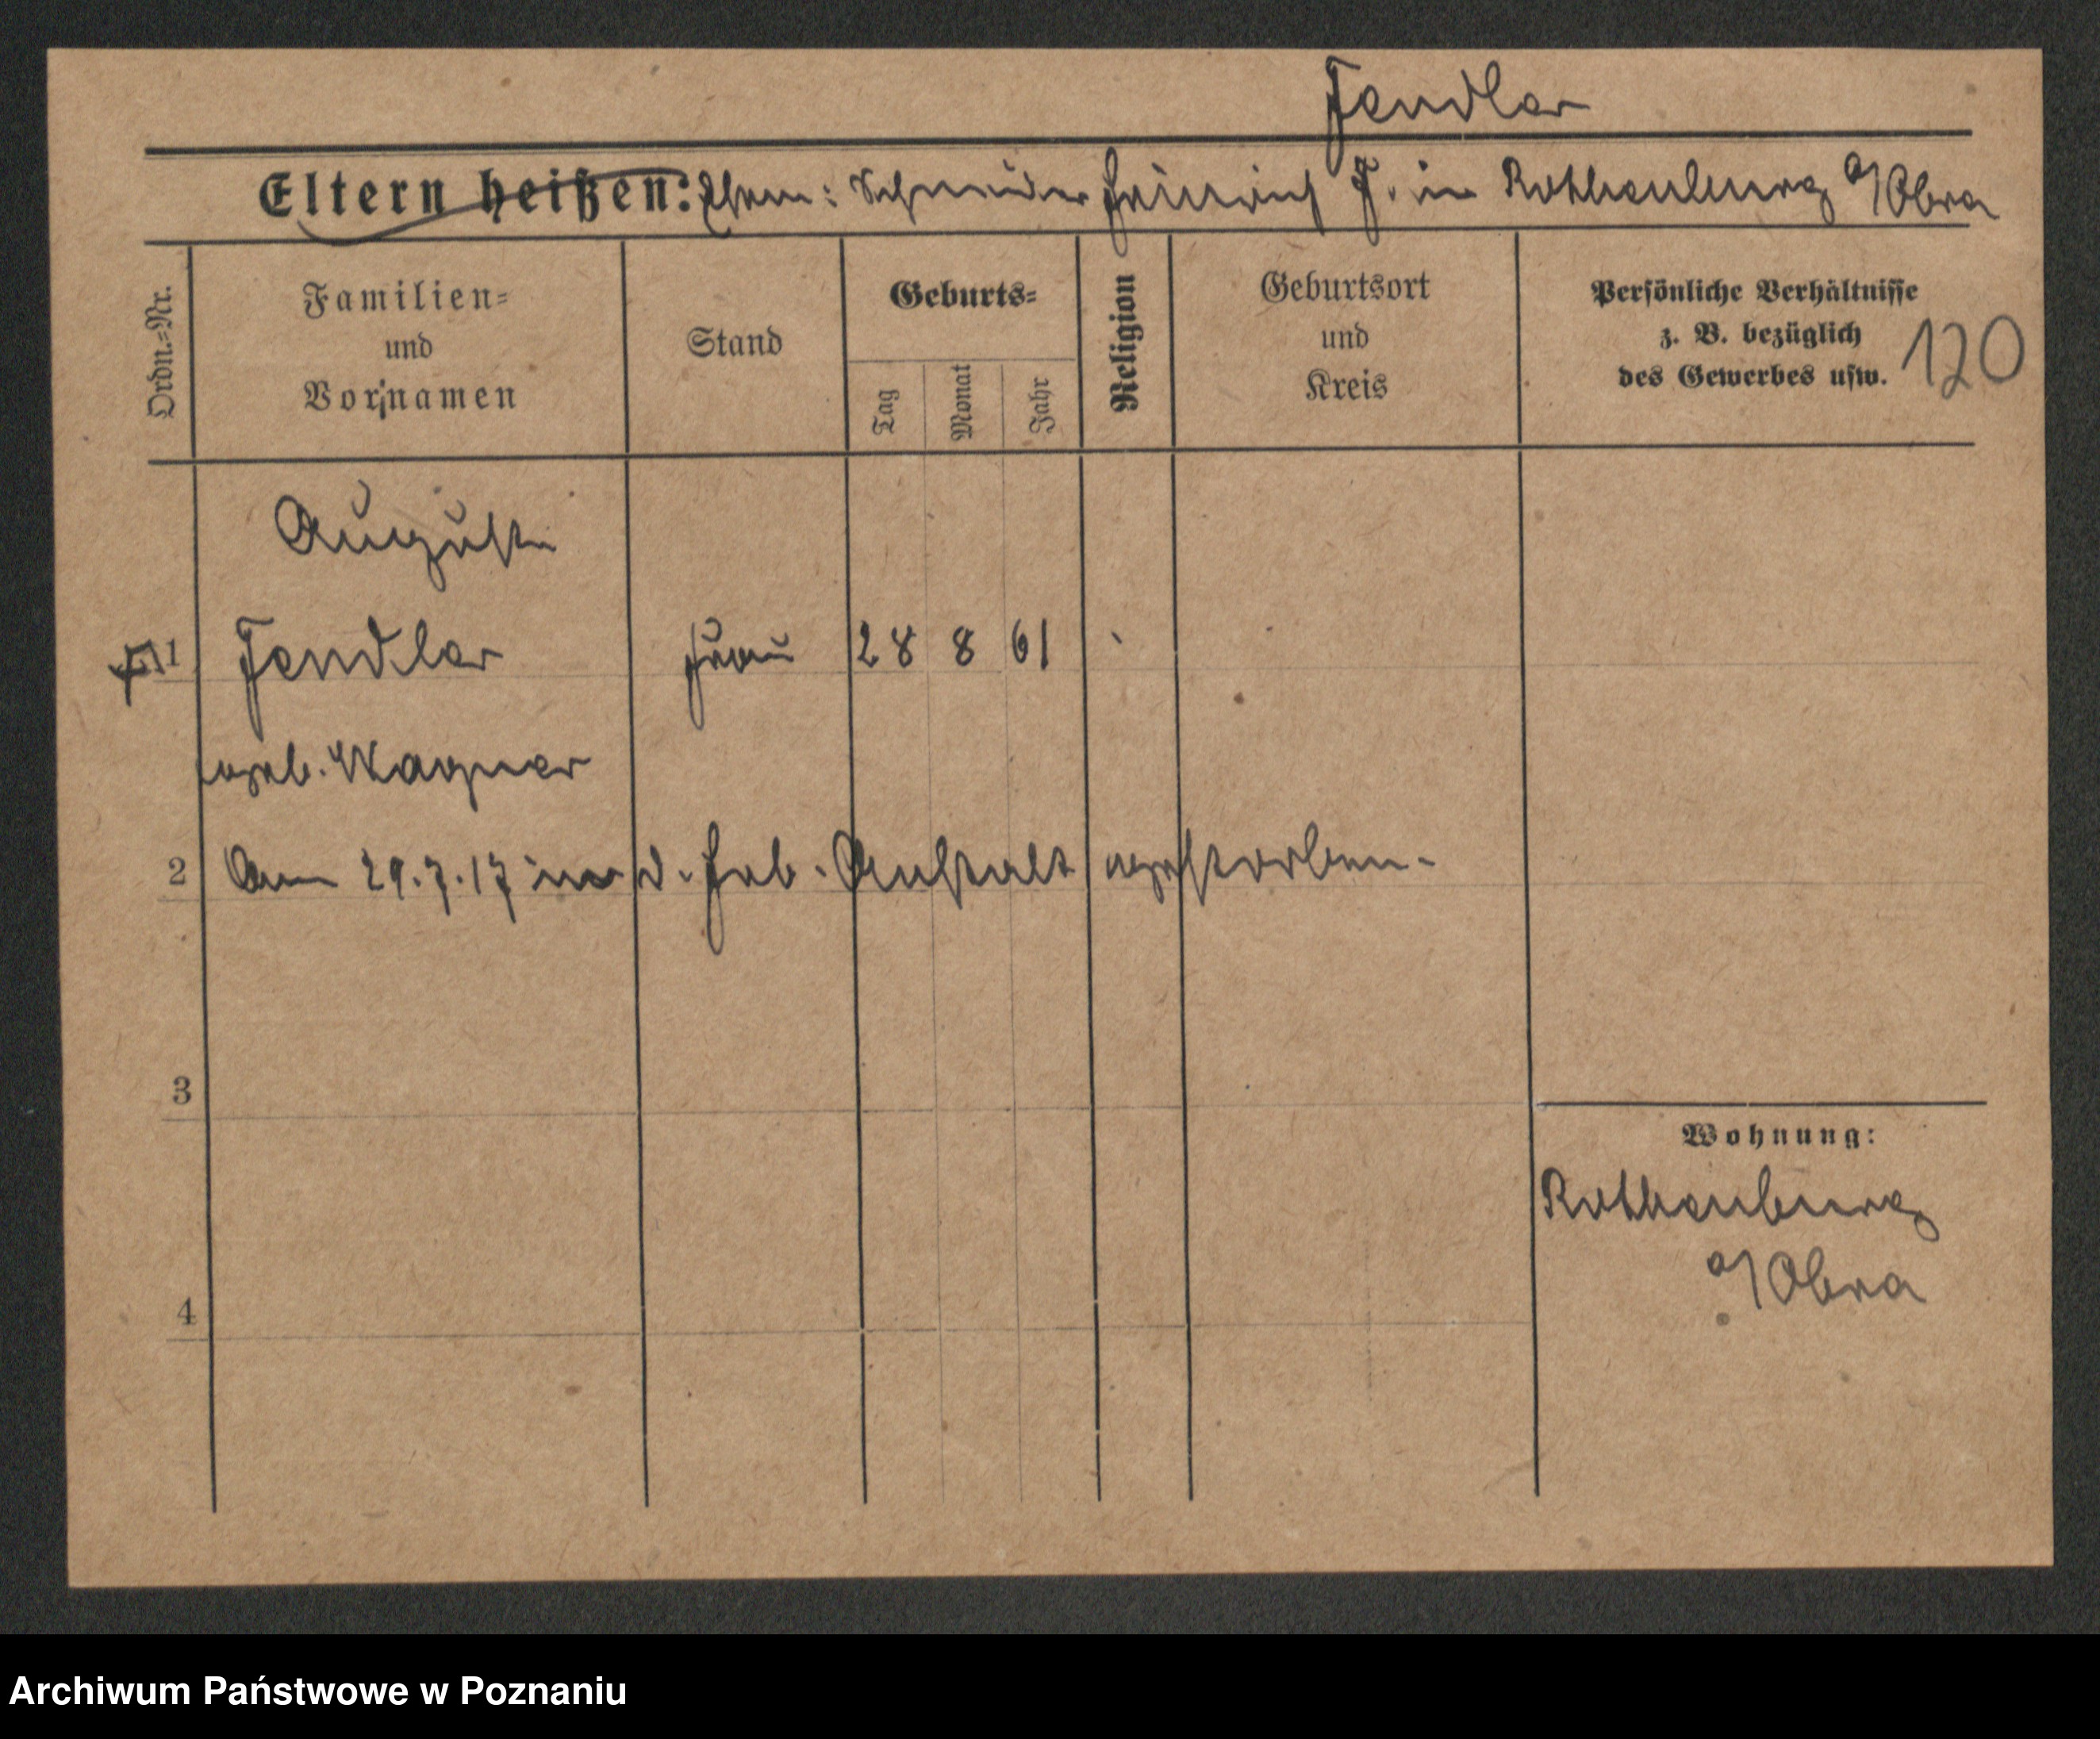 Fendler
Eltern heißen: Ehem: Schneider Heinrich F. in Rothenburg a/Obra
Ordn.=Nr.
Familien=
und
Vornamen
Stand
Geburts=
Tag
Monat
Jahr
Religion
Geburtsort
und
Kreis
Persönliche Verhältnisse
z. B. bezüglich
des Gewerbes usw.
120
Auguste
1 Fendler Frau 28 8 61
geb. Wagner
2 Am 29.7.17 in d. Heb. Anstalt gestorben.
3
Wohnung:
Rothenburg
a/Obra
4
Archiwum Państwowe w Poznaniu